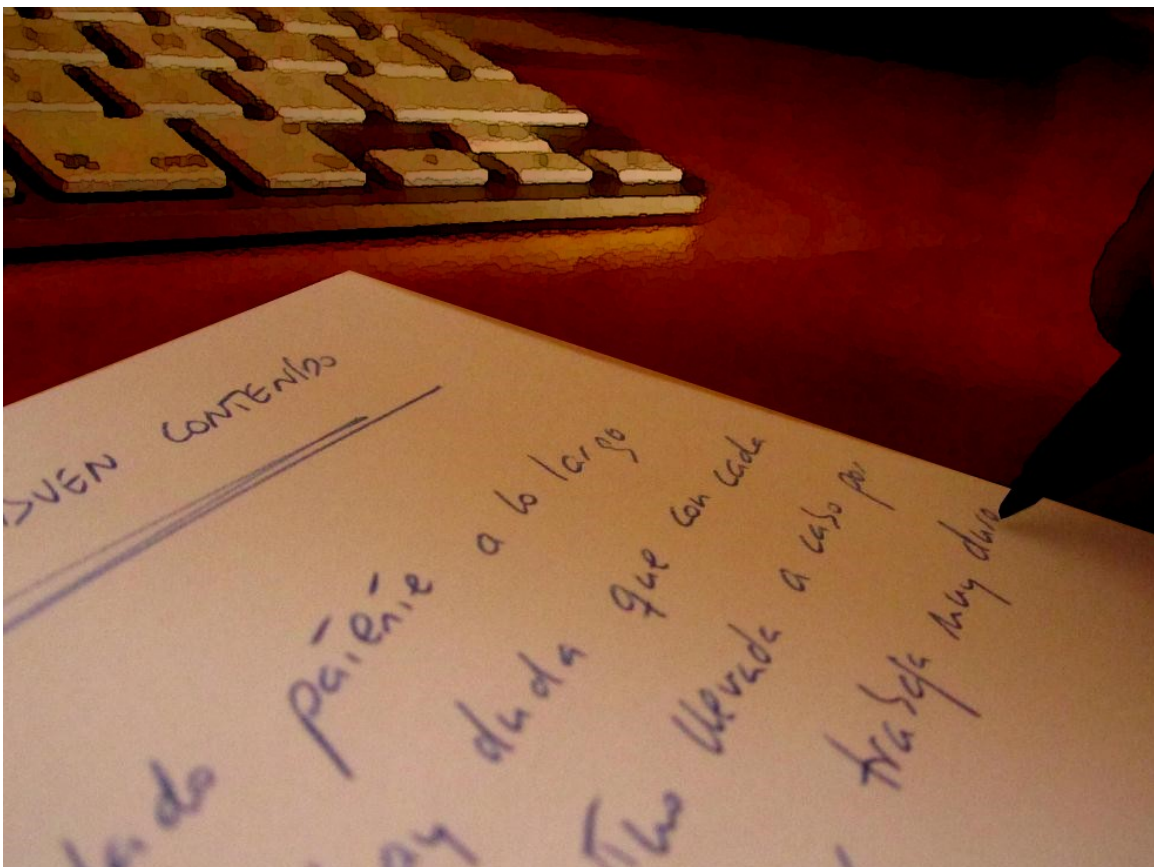 BUEN CONTENIDO
patente a lo largo
duda que con cada
llevada a cabo por
trabaja muy duro